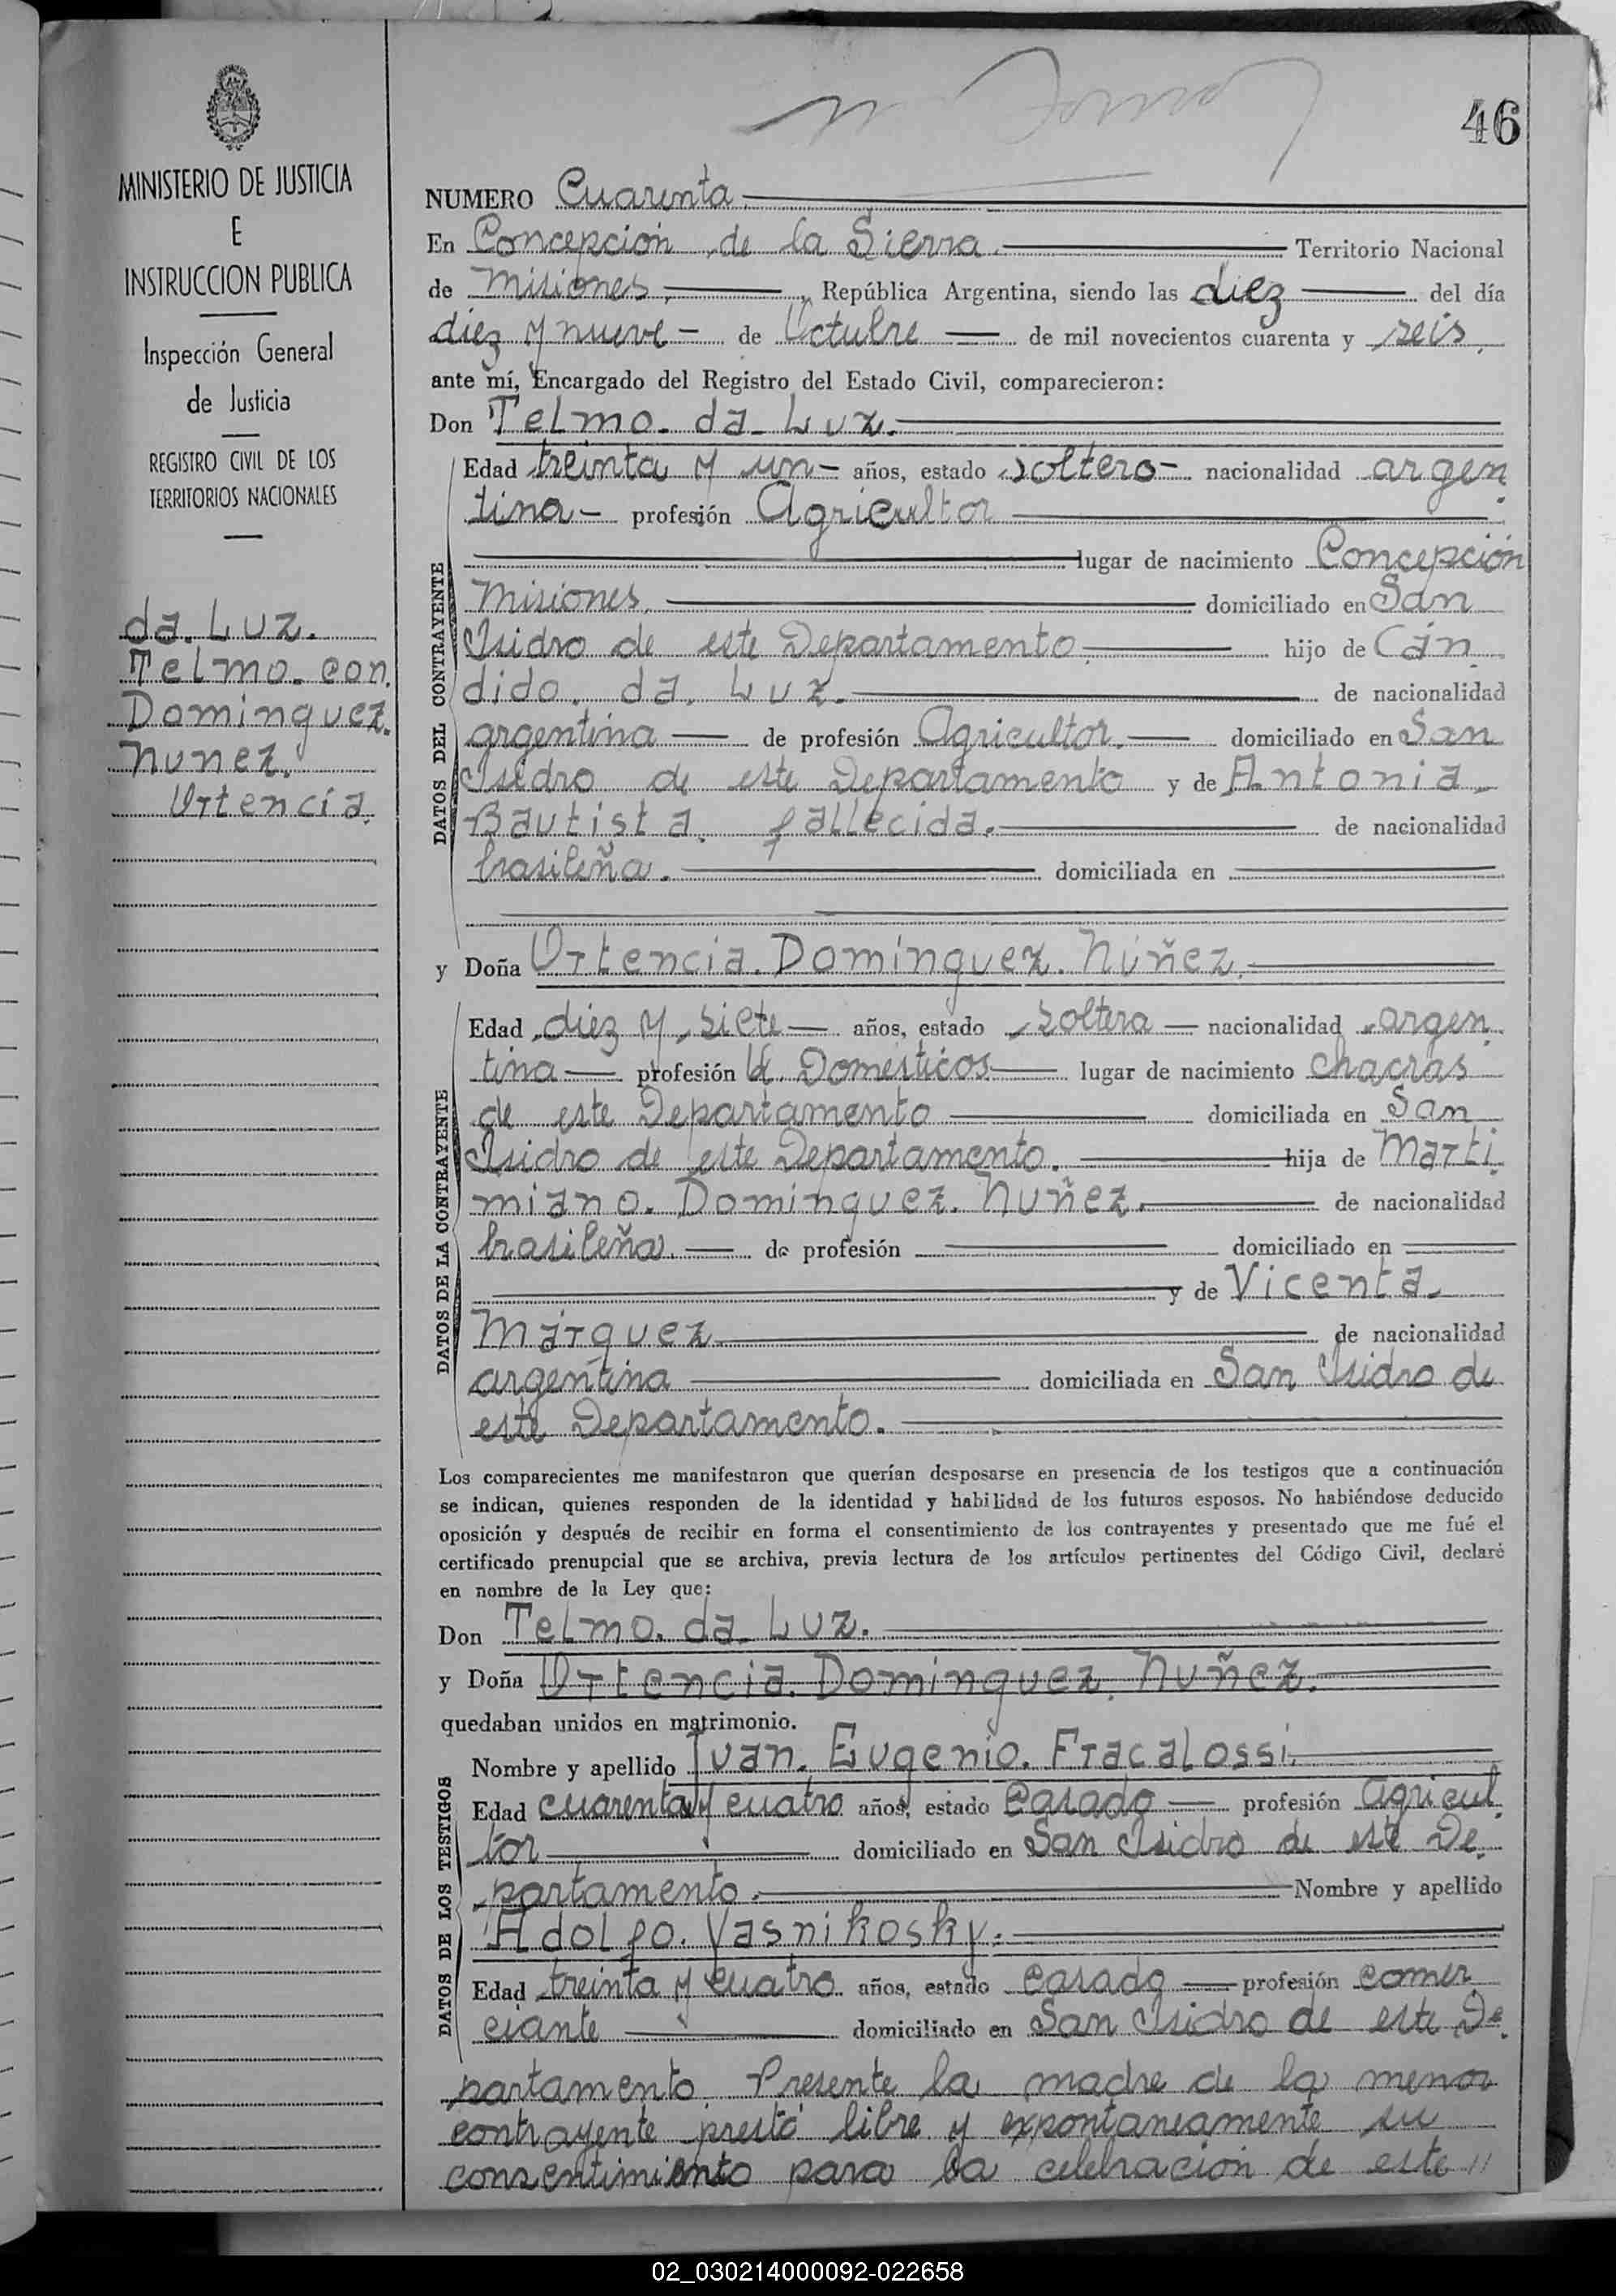 46
MINISTERIO DE JUSTICIA
E
INSTRUCCION PUBLICA
Inspección General
de Justicia
REGISTRO CIVIL DE LOS
TERRITORIOS NACIONALES
da. Luz.
Telmo. con.
Dominguez.
Nunez.
Ortencia.
NUMERO Cuarenta
En Concepción de la Sierra. Territorio Nacional
de Misiones, República Argentina, siendo las diez del día
diez y nueve de Octubre de mil novecientos cuarenta y seis.
ante mí, Encargado del Registro del Estado Civil, comparecieron:
Don Telmo. da. Luz.
DATOS DEL CONTRAYENTE
Edad treinta y un años, estado soltero nacionalidad argen
tina profesión Agricultor
lugar de nacimiento Concepción
Misiones. domiciliado en San
Isidro de este Departamento. hijo de Cán
dido. da. Luz. de nacionalidad
argentina de profesión Agricultor. domiciliado en San
Isidro de este Departamento y de Antonia.
Bautista. fallecida. de nacionalidad
brasileña. domiciliada en
y Doña Ortencia. Dominguez. Núñez.
DATOS DE LA CONTRAYENTE
Edad diez y siete años, estado soltera nacionalidad argen
tina profesión Q. Domésticos lugar de nacimiento chacras
de este Departamento domiciliada en San
Isidro de este Departamento. hija de Marti
miano. Dominguez. Nuñez. de nacionalidad
brasileña. de profesión domiciliado en
y de Vicenta.
Márquez de nacionalidad
argentina domiciliada en San Isidro de
este Departamento.
Los comparecientes me manifestaron que querían desposarse en presencia de los testigos que a continuación
se indican, quienes responden de la identidad y habilidad de los futuros esposos. No habiéndose deducido
oposición y después de recibir en forma el consentimiento de los contrayentes y presentado que me fué el
certificado prenupcial que se archiva, previa lectura de los artículos pertinentes del Código Civil, declaré
en nombre de la Ley que:
Don Telmo. da. Luz.
y Doña Ortencia. Dominguez. Nuñez.
quedaban unidos en matrimonio.
DATOS DE LOS TESTIGOS
Nombre y apellido Juan. Eugenio. Fracalossi.
Edad cuarenta y cuatro años, estado Casado profesión Agricul
tor domiciliado en San Isidro de este De
partamento. Nombre y apellido
Adolfo. Vasnikosky.
Edad treinta y cuatro años, estado casado profesión comer
ciante domiciliado en San Isidro de este De
partamento. Presente la madre de la menor
contrayente prestó libre y expontaneamente su
consentimiento para la celebración de este //
02_030214000092-022658